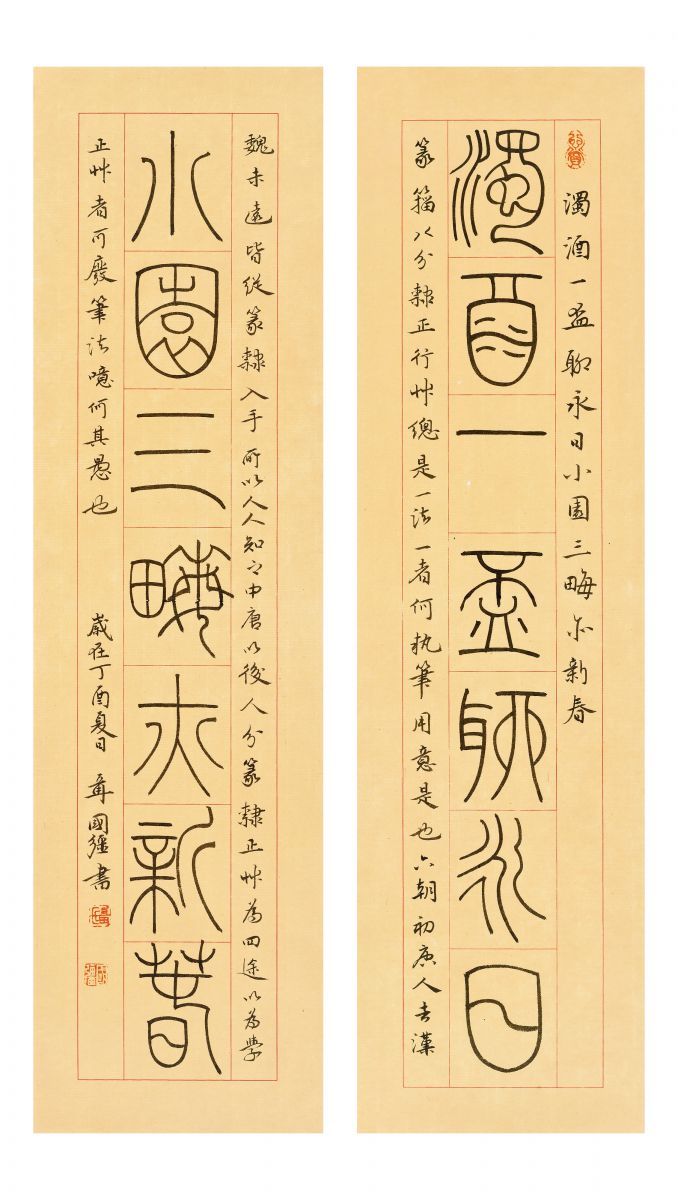 濁酒一盃聊永日小園三畮亦新春
濁酉一盃聊永日
篆籀八分隸正行艸總是一法一者何執筆用意是也六朝初唐人去漢
魏未遠皆從篆隸入手所以人人知之中唐以後人分篆隸正艸為四途以為學
小園三畮亦新春
正艸者可廢筆法噫何其愚也 歲在丁酉夏日 國疆書